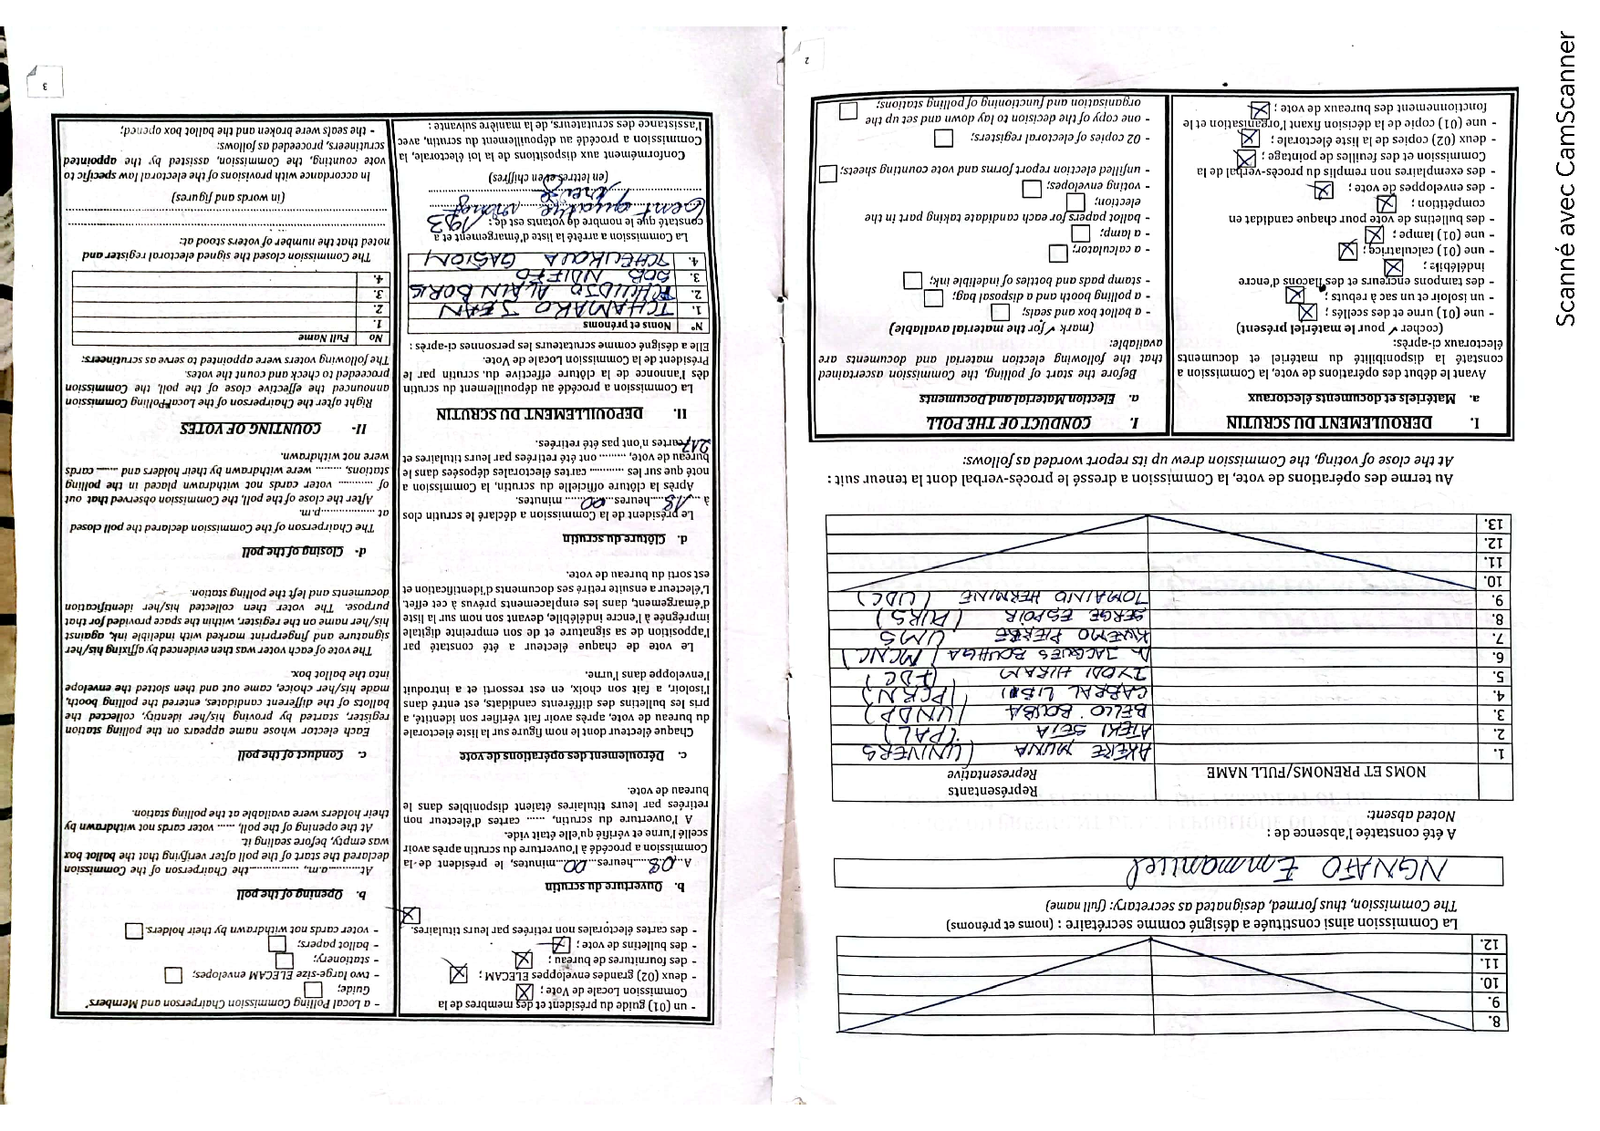 8.
9.
10.
11.
12.
La Commission ainsi constituée a désigné comme secrétaire : (noms et prénoms)
The Commission, thus formed, designated as secretary: (full name)
NGNAFO Emmanuel
A été constatée l'absence de :
Noted absent:
NOMS ET PRENOMS/FULL NAME
Représentants
Representative
1. AKERE MUNA (UNIVERS
2. ATEKI SETA (PAL)
3. BELLO BOUBA (UNDP)
4. CABRAL LIBII (PCRN)
5. IYODI HIRAM (FDC)
6. JACQUES BOUHGA (MCNC)
7. KWEMO PIERRE (UMS
8. SERGE ESPOIR (PURS)
9. TOMAINO HERMINE (UDC)
10.
11.
12.
13.
Au terme des opérations de vote, la Commission a dressé le procès-verbal dont la teneur suit :
At the close of voting, the Commission drew up its report worded as follows:
I. DEROULEMENT DU SCRUTIN
a. Matériels et documents électoraux
Avant le début des opérations de vote, la Commission a
constaté la disponibilité du matériel et documents
électoraux ci-après:
(cocher ✓ pour le matériel présent)
- une (01) urne et des scellés ;
- un isoloir et un sac à rebuts ;
- des tampons encreurs et des flacons d'encre
indélébile ;
- une (01) calculatrice ;
- une (01) lampe ;
- des bulletins de vote pour chaque candidat en
compétition ;
- des enveloppes de vote ;
- des exemplaires non remplis du procès-verbal de la
Commission et des feuilles de pointage ;
- deux (02) copies de la liste électorale ;
- une (01) copie de la décision fixant l'organisation et le
fonctionnement des bureaux de vote ;
I. CONDUCT OF THE POLL
a. Election Material and Documents
Before the start of polling, the Commission ascertained
that the following election material and documents are
available:
(mark ✓ for the material available)
- a ballot box and seals;
- a polling booth and a disposal bag;
- stamp pads and bottles of indelible ink;
- a calculator;
- a lamp;
- ballot papers for each candidate taking part in the
election;
- voting envelopes;
- unfilled election report forms and vote counting sheets;
- 02 copies of electoral registers;
- one copy of the decision to lay down and set up the
organisation and functioning of polling stations;
2
- un (01) guide du président et des membres de la
Commission Locale de Vote ;
- deux (02) grandes enveloppes ELECAM ;
- des fournitures de bureau ;
- des bulletins de vote ;
- des cartes électorales non retirées par leurs titulaires.
b. Ouverture du scrutin
A 08 heures 00 minutes, le président de la
Commission a procédé à l'ouverture du scrutin après avoir
scellé l'urne et vérifié qu'elle était vide.
A l'ouverture du scrutin, ...... cartes d'électeur non
retirées par leurs titulaires étaient disponibles dans le
bureau de vote.
c. Déroulement des opérations de vote
Chaque électeur dont le nom figure sur la liste électorale
du bureau de vote, après avoir fait vérifier son identité, a
pris les bulletins des différents candidats, est entré dans
l'isoloir, a fait son choix, en est ressorti et a introduit
l'enveloppe dans l'urne.
Le vote de chaque électeur a été constaté par
l'apposition de sa signature et de son empreinte digitale
imprégnée à l'encre indélébile, devant son nom sur la liste
d'émargement, dans les emplacements prévus à cet effet.
L'électeur a ensuite retiré ses documents d'identification et
est sorti du bureau de vote.
d. Clôture du scrutin
Le président de la Commission a déclaré le scrutin clos
à 18 heures 00 minutes.
Après la clôture officielle du scrutin, la Commission a
noté que sur les .......... cartes électorales déposées dans le
bureau de vote, ........ ont été retirées par leurs titulaires et
217 cartes n'ont pas été retirées.
II. DEPOUILLEMENT DU SCRUTIN
La Commission a procédé au dépouillement du scrutin
dès l'annonce de la clôture effective du scrutin par le
Président de la Commission Locale de Vote.
Elle a désigné comme scrutateurs les personnes ci-après :
N° Noms et prénoms
1. TCHAMAKO JEAN
2. TCHUIDJO ALAIN BORIS
3. SOB NDIFFO
4. TCHEUKOUA GASTON
La Commission a arrêté la liste d'émargement et a
constaté que le nombre de votants est de : 193
Cent quatre vingt
treize
(en lettres et en chiffres)
Conformément aux dispositions de la loi électorale, la
Commission a procédé au dépouillement du scrutin, avec
l'assistance des scrutateurs, de la manière suivante :
- a Local Polling Commission Chairperson and Members'
Guide;
- two large-size ELECAM envelopes;
- stationery;
- ballot papers;
- voter cards not withdrawn by their holders.
b. Opening of the poll
At..........a.m., ..............the Chairperson of the Commission
declared the start of the poll after verifying that the ballot box
was empty, before sealing it.
At the opening of the poll, ...... voter cards not withdrawn by
their holders were available at the polling station.
c. Conduct of the poll
Each elector whose name appears on the polling station
register, started by proving his/her identity, collected the
ballots of the different candidates, entered the polling booth,
made his/her choice, came out and then slotted the envelope
into the ballot box.
The vote of each voter was then evidenced by affixing his/her
signature and fingerprint marked with indelible ink, against
his/her name on the register, within the space provided for that
purpose. The voter then collected his/her identification
documents and left the polling station.
d- Closing of the poll
The Chairperson of the Commission declared the poll closed
at ..................p.m.
After the close of the poll, the Commission observed that out
of .......... voter cards not withdrawn placed in the polling
stations, ........ were withdrawn by their holders and ...... cards
were not withdrawn.
II- COUNTING OF VOTES
Right after the Chairperson of the Local Polling Commission
announced the effective close of the poll, the Commission
proceeded to check and count the votes.
The following voters were appointed to serve as scrutineers:
No Full Name
1.
2.
3.
4.
The Commission closed the signed electoral register and
noted that the number of voters stood at:
(in words and figures)
In accordance with provisions of the electoral law specific to
vote counting, the Commission, assisted by the appointed
scrutineers, proceeded as follows:
- the seals were broken and the ballot box opened;
3
Scanné avec CamScanner